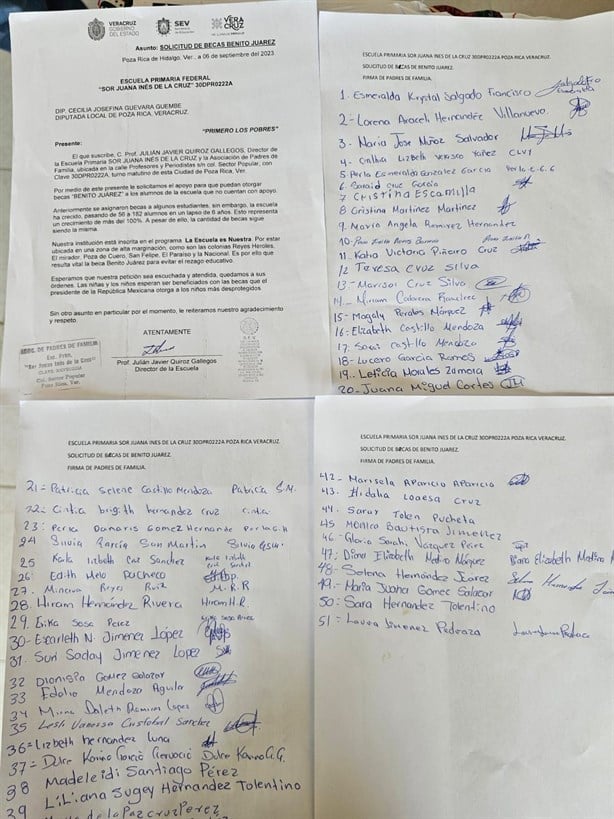 VERACRUZ
GOBIERNO
DEL ESTADO
SEV
VERA
CRUZ
Asunto: SOLICITUD DE BECAS BENITO JUAREZ
Poza Rica de Hidalgo. Ver., a 06 de septiembre del 2023
ESCUELA PRIMARIA FEDERAL
"SOR JUANA INÉS DE LA CRUZ" 30DPR0222A
DIP. CECILIA JOSEFINA GUEVARA GUEMBE
DIPUTADA LOCAL DE POZA RICA, VERACRUZ.
"PRIMERO LOS POBRES"
Presente:
El que suscribe, C. Prof. JULIÁN JAVIER QUIROZ GALLEGOS, Director de
la Escuela Primaria SOR JUANA INES DE LA CRUZ y la Asociación de Padres de
Familia, ubicada en la calle Profesores y Pensionistas s/n col. Sector Popular, con
Clave 30DPR0222A, turno matutino de esta Ciudad de Poza Rica, Ver.
Por medio de este le solicitamos el apoyo para que puedan otorgar
becas "BENITO JUÁREZ" a los alumnos de la escuela que no cuentan con apoyo.
Anteriormente se asignaron becas a algunos estudiantes, sin embargo, la escuela
ha crecido, pasando de 56 a 182 alumnos en un lapso de 6 años. Esto representa
un crecimiento de más del 100%. A pesar de ello, la cantidad de becas sigue
siendo la misma.
Nuestra institución está inscrita en el programa La Escuela es Nuestra. Por estar
ubicada en una zona de alta marginación, como son las colonias Reyes Heroles,
El mirador, Poza de Cuero, San Felipe, El Paraíso y la Nacional. Es por ello que
resulta vital la beca Benito Juárez para evitar el rezago educativo.
Esperamos que nuestra petición sea escuchada y atendida, quedamos a sus
órdenes. Las niñas y los niños esperan ser beneficiados con las becas que el
presidente de la República Mexicana otorga a los niños más desprotegidos.
Sin otro asunto en particular por el momento, le reiteramos nuestro agradecimiento
y respeto.
ATENTAMENTE
Prof. Julián Javier Quiroz Gallegos
Director de la Escuela
DE PADRES DE FAMILIA
Esc. Prim.
"Sor Juana Inés de la Cruz"
Col. Sector Popular
Poza Rica, Ver.
ESCUELA PRIMARIA SOR JUANA INES DE LA CRUZ 30DPR0222A POZA RICA VERACRUZ.
SOLICITUD DE BECAS DE BENITO JUAREZ.
FIRMA DE PADRES DE FAMILIA.
1. Esmeralda Krystal Salgado Francisco
2- Lorena Araceli Hernández Villanueva
3- Maria Jose Muñoz Salvador
4- Cinthia Lizbeth Velasco Yañez CLVY
5 Perla Esmeralda Gonzalez Garcia Perla E.G.G
6 Cruz Garcia
7 Cristina Escamilla
8 Cristina Martinez Martinez
9 Maria Angela Ramirez Hernandez
10-
11. Katia Victoria Piñeiro Cruz
12 Teresa Cruz Silva
13- Marisol Cruz Silva
14- Miriam Cabrera Ramirez
15- Magaly Perales Márquez
16- Elizabeth Castillo Mendoza
17- Castillo Mendoza
18- Lucero Garcia Ramos
19. Leticia Morales Zamora
20- Juana Miguel Cortes
ESCUELA PRIMARIA SOR JUANA INES DE LA CRUZ 30DPR0222A POZA RICA VERACRUZ.
SOLICITUD DE BECAS DE BENITO JUAREZ.
FIRMA DE PADRES DE FAMILIA.
21= Patricia Selene Castillo Mendoza
22- Cintia brigith hernandez cruz cintia
23- Perla Damaris Gomez Hernande Perla G.H
24 Silvia García San Martin
25 Karla lizbeth Cruz Sanchez
26- Edith Melo Pacheco
27- Minerva Reyes Ruiz M.R.R
28. Hiram Hernández Rivera Hiram H.R.
29. Erika Sosa Perez Erika Sosa Perez
30- Escarleth N. Jimenez López
31- Suri Saday Jimenez Lopez
32 Dionisia Gomez Salazar
33 Mendoza Aguilar
34 Lopez
35 Lesli Vanessa Cristobal Sanchez
36= Lizbeth hernandez Luna
37= Dulce Karina
38 Madeleidi Santiago Pérez
39 LiLiana Sugey Hernandez Tolentino
de la Paz cruz Perez
ESCUELA PRIMARIA SOR JUANA INES DE LA CRUZ 30DPR0222A POZA RICA VERACRUZ.
SOLICITUD DE BECAS DE BENITO JUAREZ.
FIRMA DE PADRES DE FAMILIA.
42- Marisela Aparicio Aparicio
43. Hidalia Loaesa Cruz
44. Saray Tolen Pucheta
45 Monica Bautista Jimenez
46- Gloria Sarahi Vázquez Perez
47; Diana Elizabeth Medina Márquez Diana Elizabeth Medina M
48- Selena Hernández Juárez Selena Hernandez
49- Maria Juana Gomez Salazar
50- Sara Hernandez Tolentino
51- Laura Jimenez Pedraza